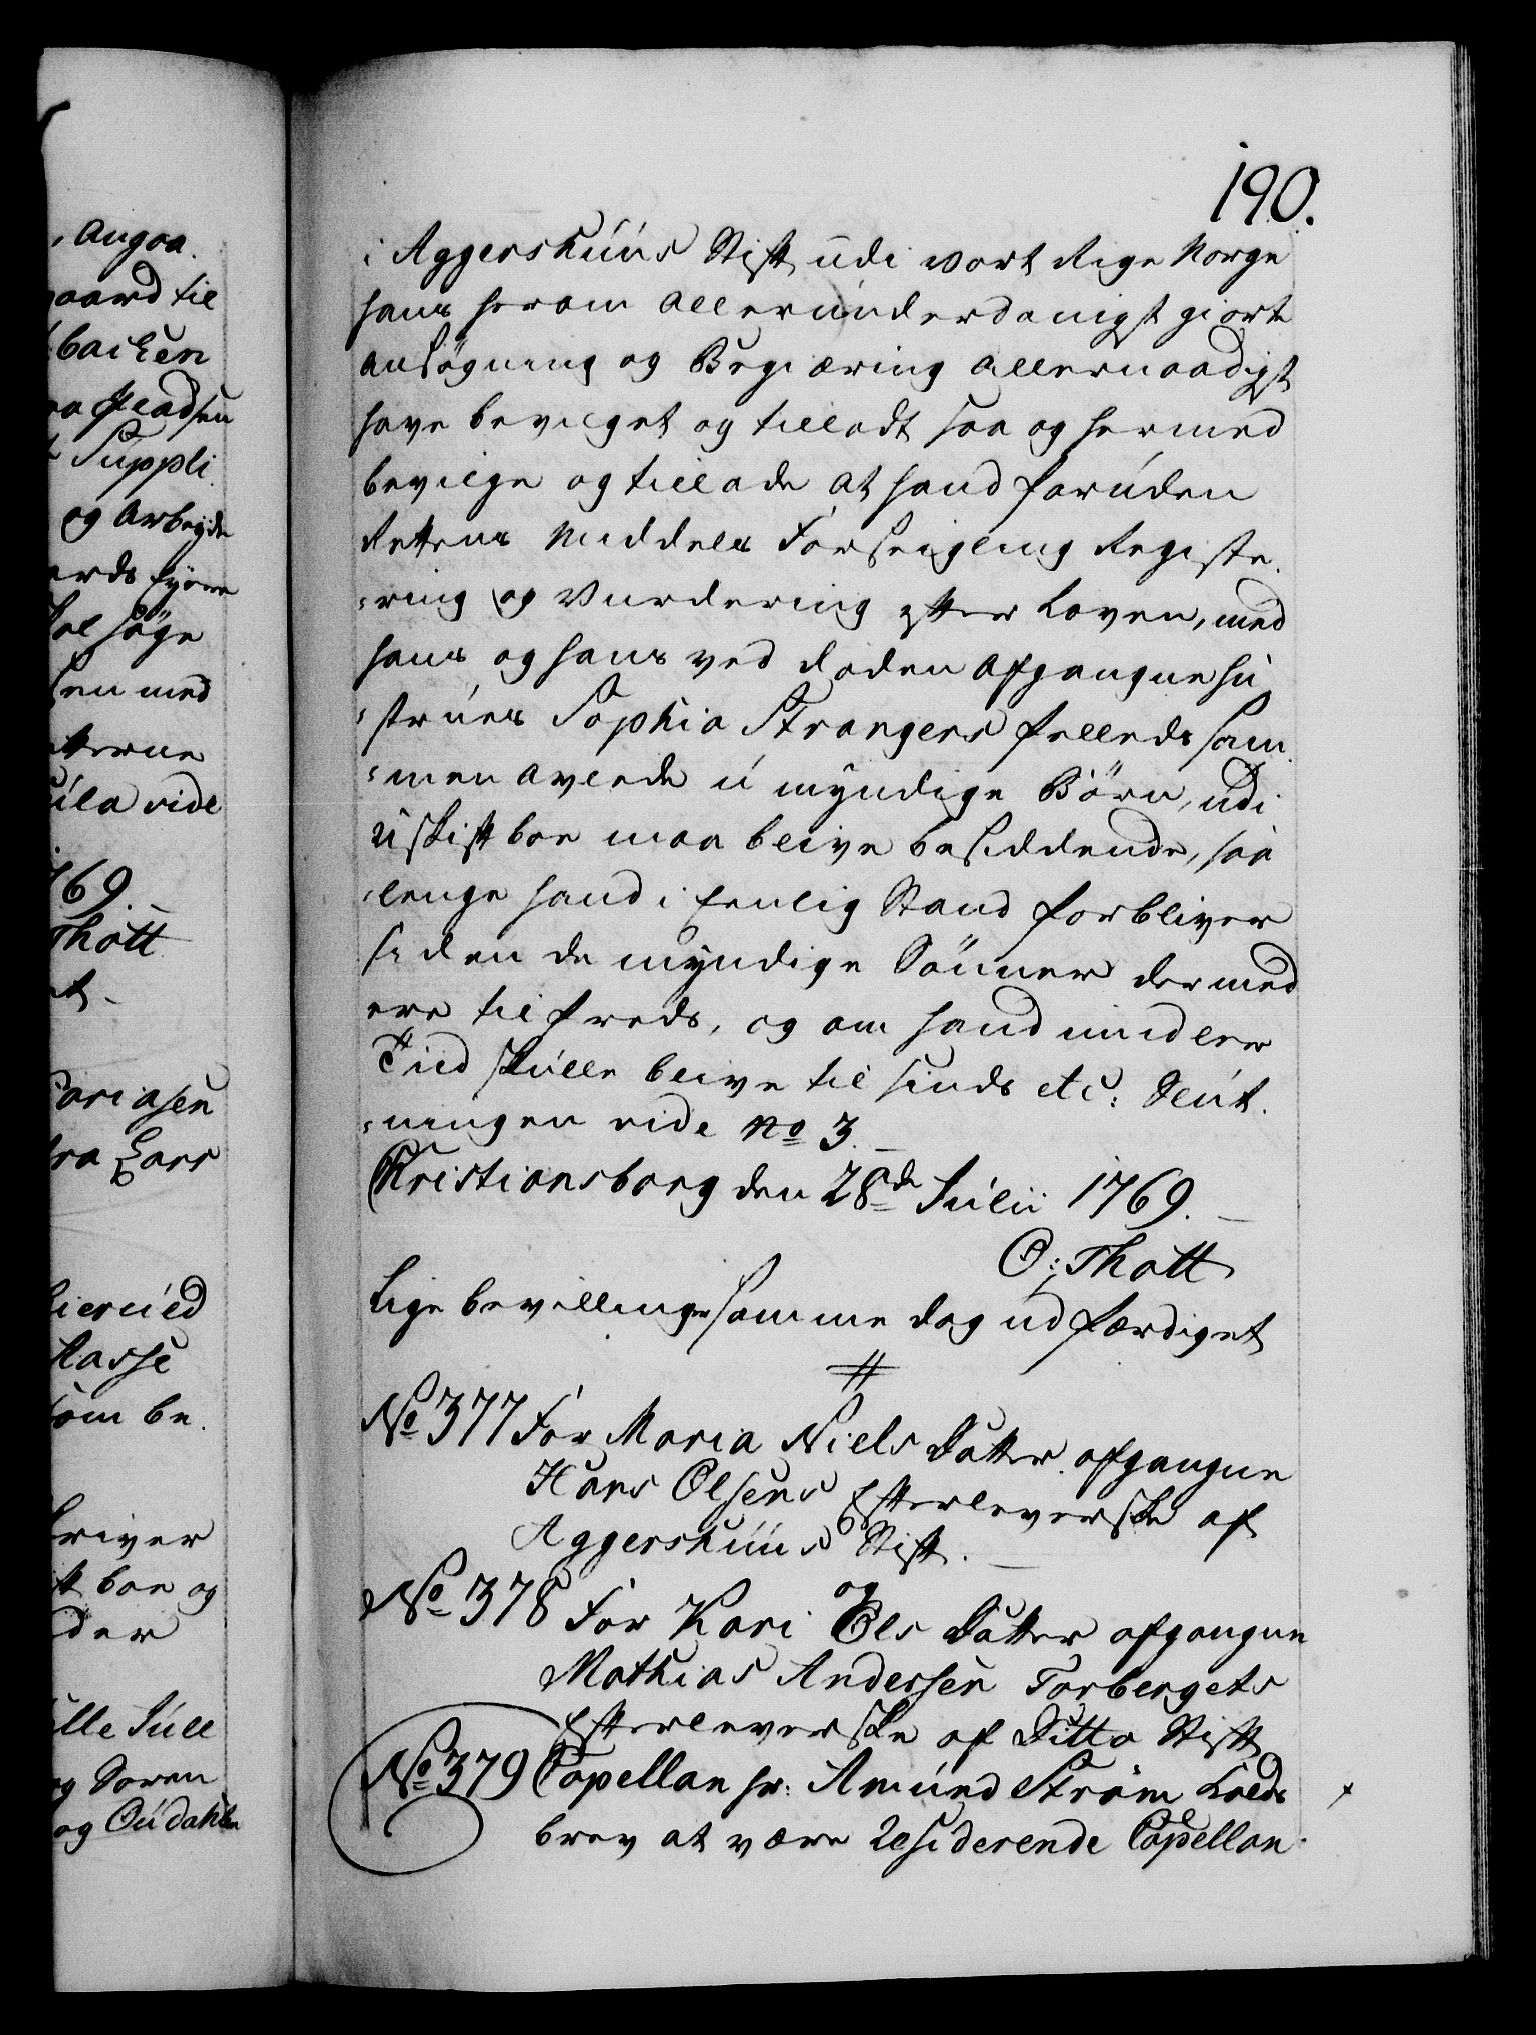 190.
i Aggershuus Stift udi vort Rige Norge
hans herom allerunderdanigst giorte
ansögning og Begiæring allernaadigst
have bevilget og tilladt saa og hermed
bevilge og tillade at hand foruden
Rettens Middels Forseigling Registe-
-ring og Vurdering efter Loven, med
hans og hans ved døden afgangne hu
-strues Sophia Strangers felleds sam
-men avlede u myndige Börn, udi
uskift boe maa blive besiddende, saa
lenge hand i Eenlig Stand forbliver
siden de myndige Sönner dermed
ere tilfreds, og om hand imidler
Tiid skulle blive til sinds etc: Slut-
-ningen vide No 3.
Christiansborg den 28de Julii 1769.
O: Thott
Lige bevillinger samme dag udfærdiget
No 377 For Maria Niels Datter afgangne
Hans Olsens Efterleverske af
Aggershuus Stift.
og
No 378 For Kari Ols Datter afgangne
Mathias Andersen Torbergets
Efterleverske af Ditto Stift
No 379 Capellan hr: Amund Ström Kalds
brev at være Residerende Capellan
, Angaa
gaard til
backen
Pladsen
Suppli
og Arbeyde
söge
med
vide
169.
Thott
Lars
som be
og
Soren
og